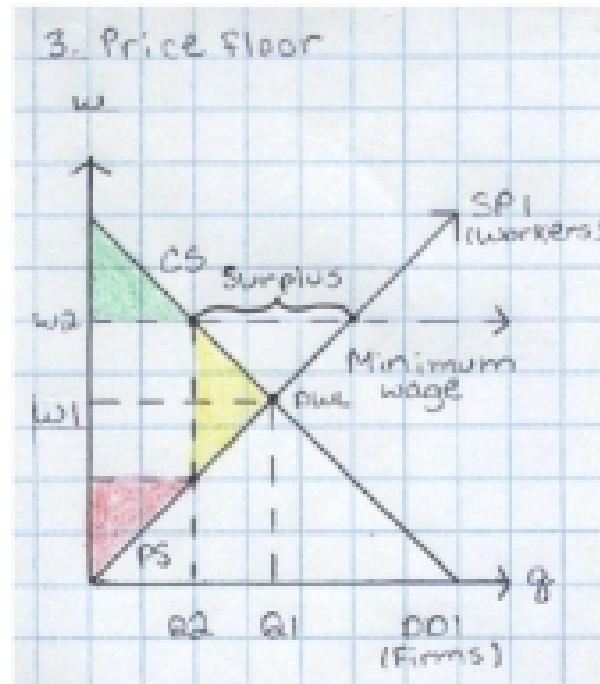 3. Price Floor
w
SP1
(workers)
CS
Surplus
w2
Minimum
wage
DWL
w1
PS
q
Q2
Q1
DD1
(Firms)